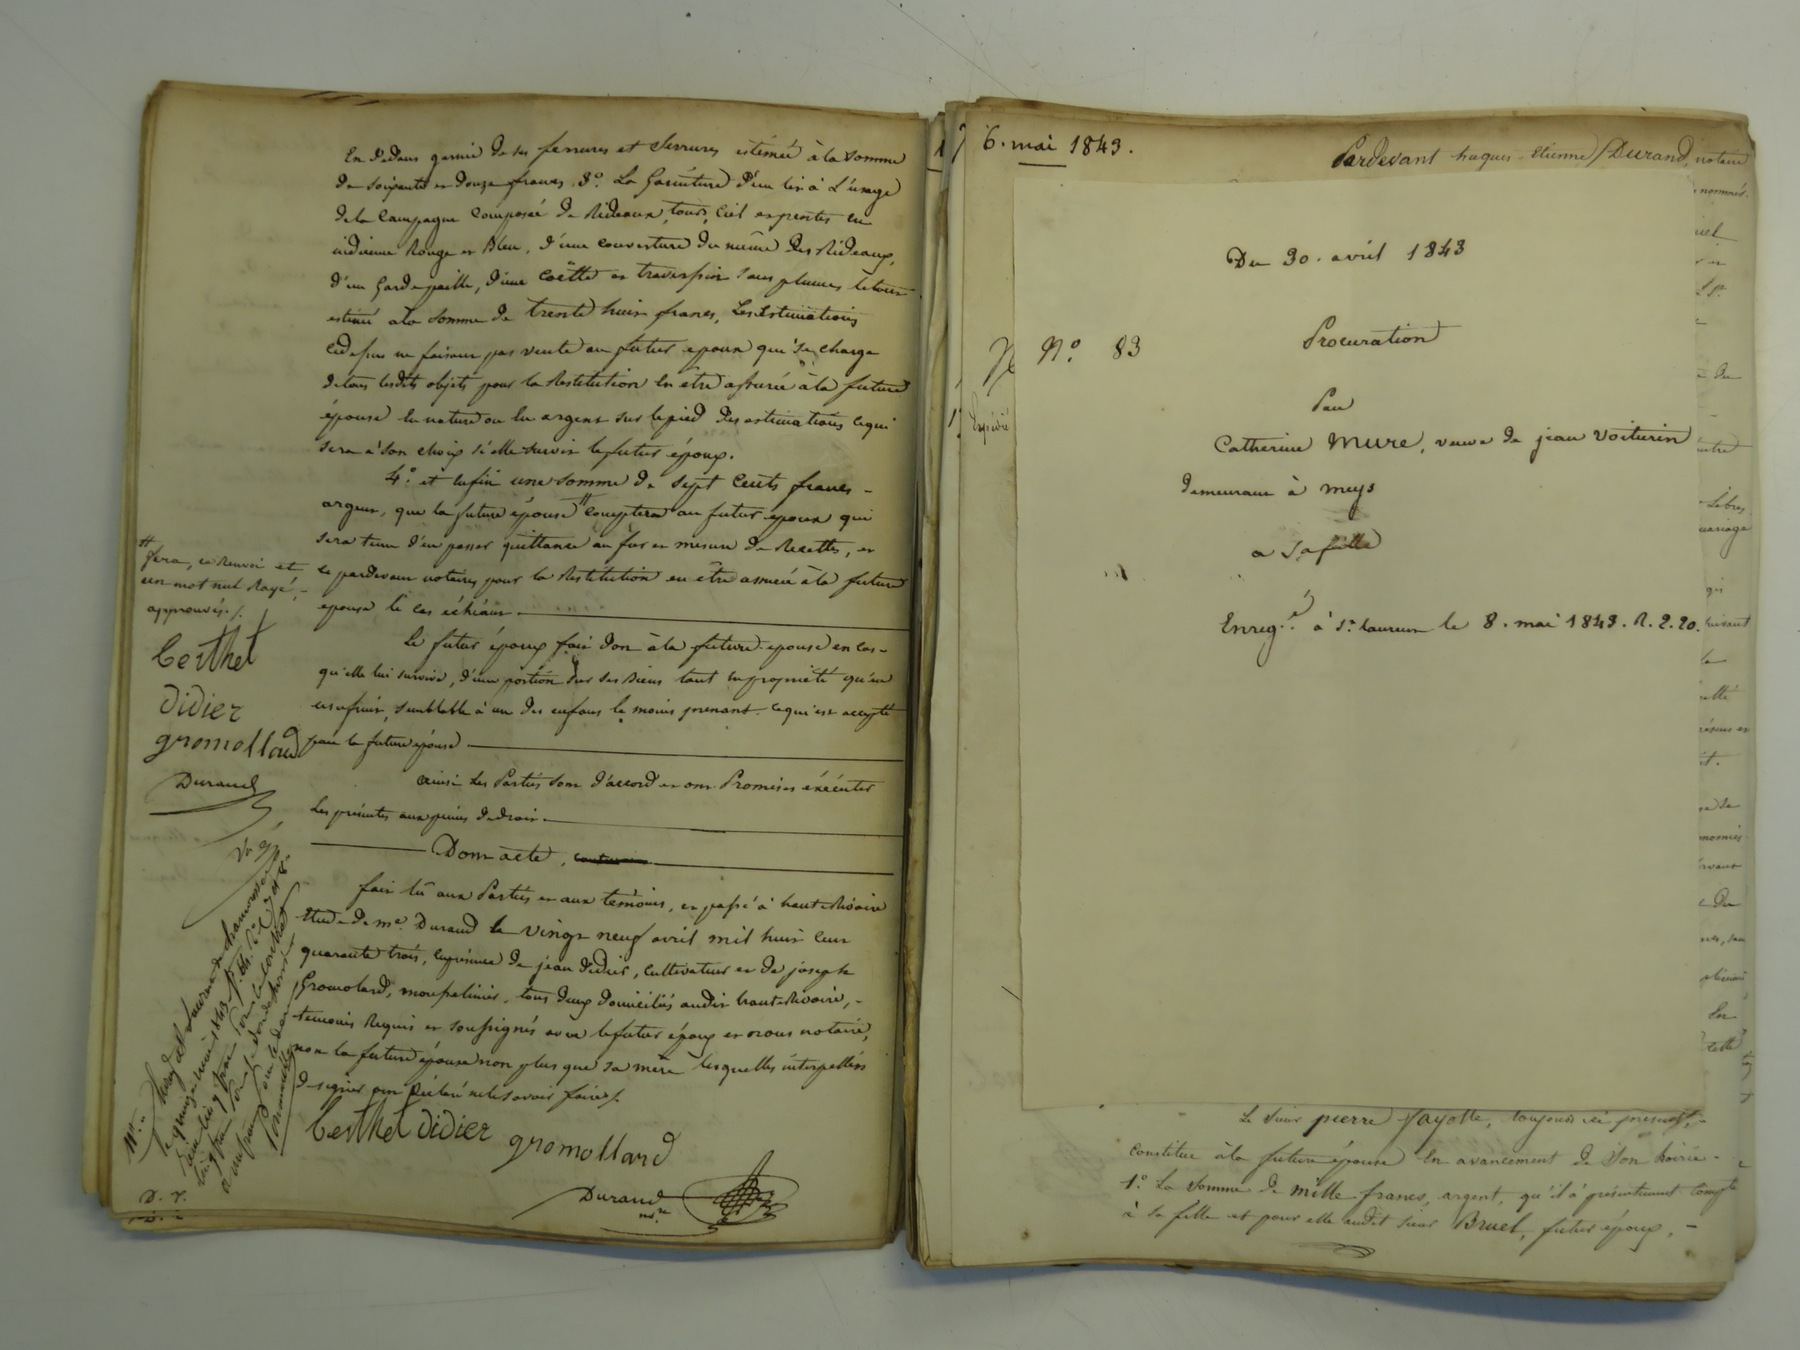 En dedans garnie de ses ferrures et serrures estimée à la somme
de soixante et douze francs. 3.° La Garniture d'un lit à L'usage
de la Campagne Composée de Rideaux, tours, Ciel et pentes en
indienne Rouge et Bleu, d'une couverture du même des Rideaux,
d'un Garde paille, d'une Coëtte et traversin sans plumes le tout
estimé à la Somme de trente huit francs, Les Estimations
cidessus ne faisant pas vente au futur epoux qui se charge
de tous lesdits objets pour la Restitution en être assurée à la future
épouse en nature ou en argent sur le pied des estimations ce qui
sera à son choix si elle survit le futur époux.
4.° et enfin une somme de sept Cents francs –
argent, que la future épouse # Comptera au futur epoux qui
sera tenu d'en passer quittance au fur et mesure de Recettes, et
ce pardevant notaires pour la Restitution en être assurée à la future
epouse le cas échéant.
# fera, ce Renvoi et
un mot nul Rayé, –
approuvés ./.
berthet
didier
gromollard
Durand
Le futur époux fait don à la future epouse en cas –
qu'elle lui survive, d'une portion sur ses Biens tant en propriété qu'en
usufruit, semblable à un des enfans le moins prenant. Ce qui est accepté
par la future épouse
ainsi Les Parties sont d'accord et ont Promis et éxécuter
Les présentes aux peines de droit.
Dont acte,
fait lû aux Parties et aux témoins, et passé à haute Rivoire
Etude de me. Durand le vingt neuf avril mil huit cent
quarante trois, en présence de jean didier, Cultivateur et de joseph
Gromolard, tous deux domiciliés audit haute Rivoire, –
temoins Requis et soussignés avec le futur époux et nous notaire,
non la future épouse non plus que sa mère lesquelles interpellées
de signer ont déclaré ne le savoir faire ./.
berthet didier gromollard
Durand
nre.
6. mai 1843.
Pardevant hugues-Etienne Durand, notaire
Du 30. avril 1843
N.° 83
Procuration
Par
Catherine Mure, veuve de jean Voiturin
demeurant à meys
a sa fille
Expédié
Enreg.é à St. Laurent le 8. mai 1843. R. 2. 20.
Le Sieur pierre Fayolle, toujours ici présent, –
Constitue à la future épouse En avancement de Son hoirie –
1.° La Somme de mille francs, argent, qu'il a présentement Compté
à sa fille et pour elle audit sieur Bruel, futur époux, –